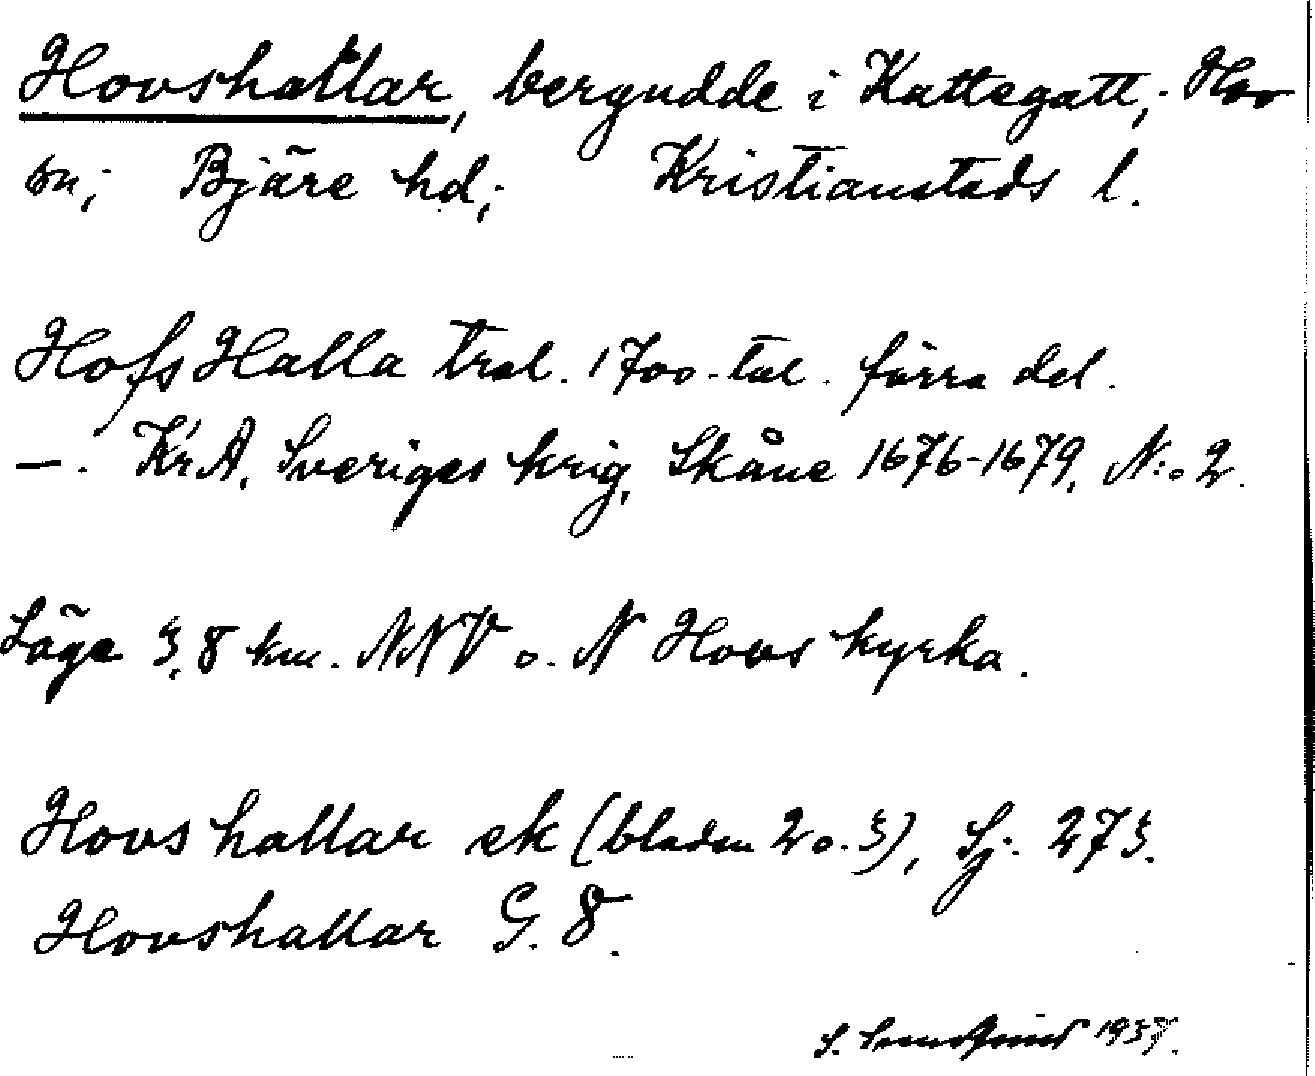 Hovshallar, bergudde i Kattegatt; Hov
sn; Bjäre hd; Kristianstads l.
HofsHalla tral. 1700-tal. förra del.
—. KrA, Sveriges krig, Skåne 1676-1679, N:o 2.
Läge 3,8 km. NNV o. N Hovs kyrka.
Hovs hallar ek (bladen 2 o. 3), Sj. 273.
Hovshallar G. 8.
S. 1937.